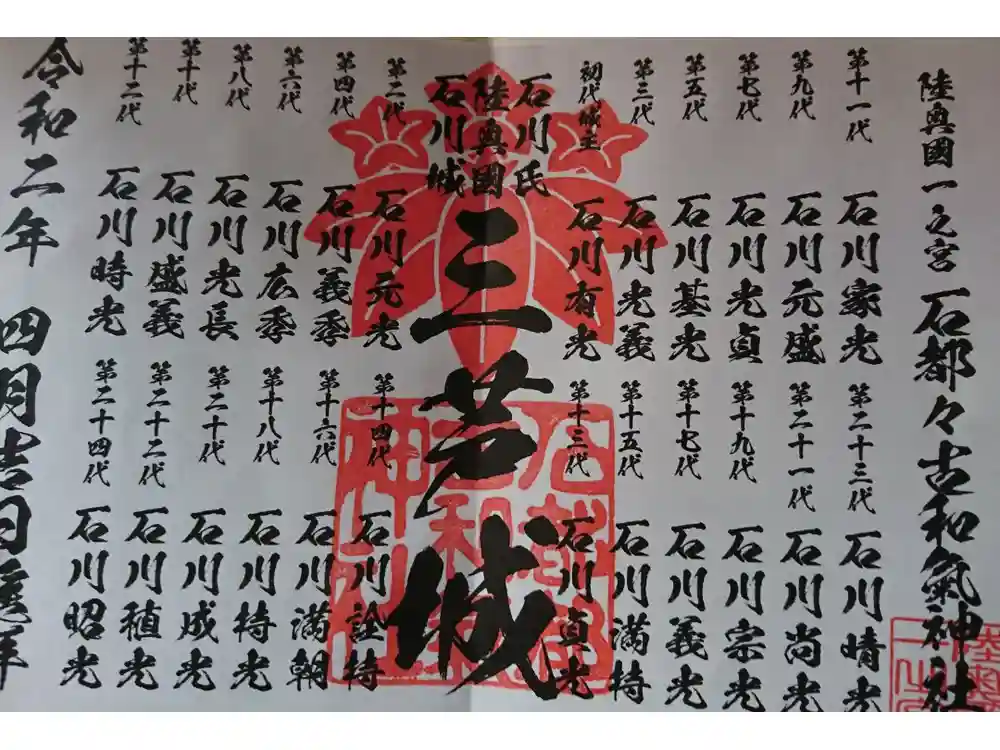 陸奥國一之宮 石都々古和氣神社
第十一代 石川家光
第二十三代 石川晴光
第九代 石川元盛
第二十一代 石川尚光
第七代 石川光貞
第十九代 石川宗光
第五代 石川基光
第十七代 石川義光
第三代 石川光義
第十五代 石川満持
初代城主 石川有光
第十三代 石川貞光
石川氏
陸奥國
石川城
三芦城
第二代 石川元光
第十四代 石川詮持
第四代 石川義季
第十六代 石川満朝
第六代 石川広季
第十八代 石川持光
第八代 石川光長
第二十代 石川成光
第十代 石川盛義
第二十二代 石川稙光
第十二代 石川時光
第二十四代 石川昭光
令和二年 四月吉日 進拝